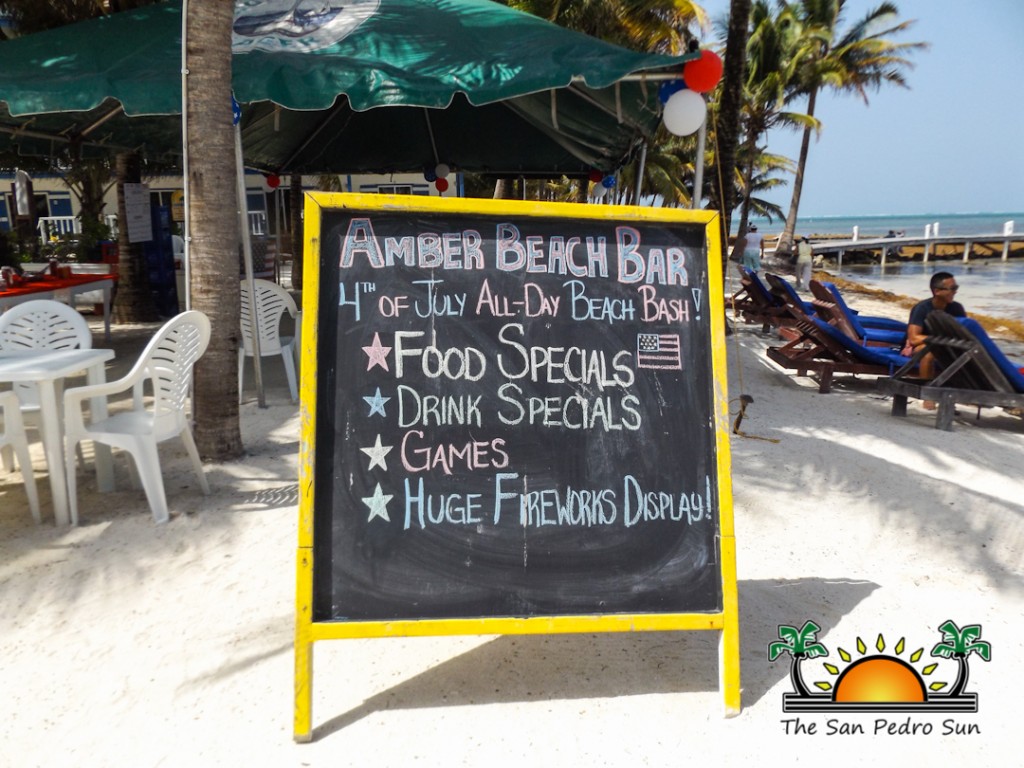 AMBER BEACH BAR
4TH OF JULY ALL-DAY BEACH BASH!
FOOD SPECIALS
DRINK SPECIALS
GAMES
HUGE FIREWORKS DISPLAY!
The San Pedro Sun